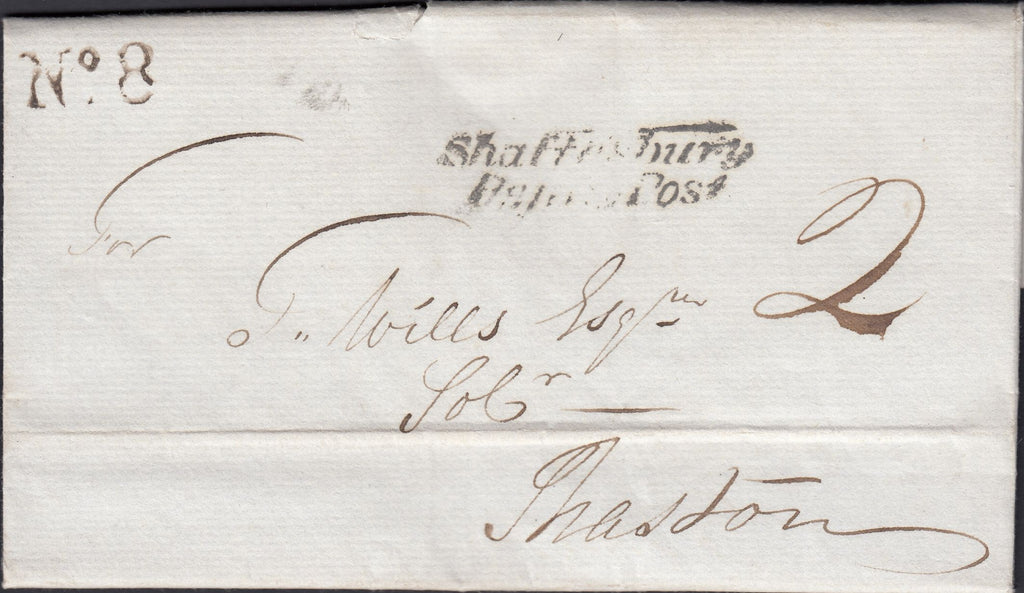 No. 8
Shaftesbury
Penny Post
For
T. Wills Esqr
2
Solr
Shaston